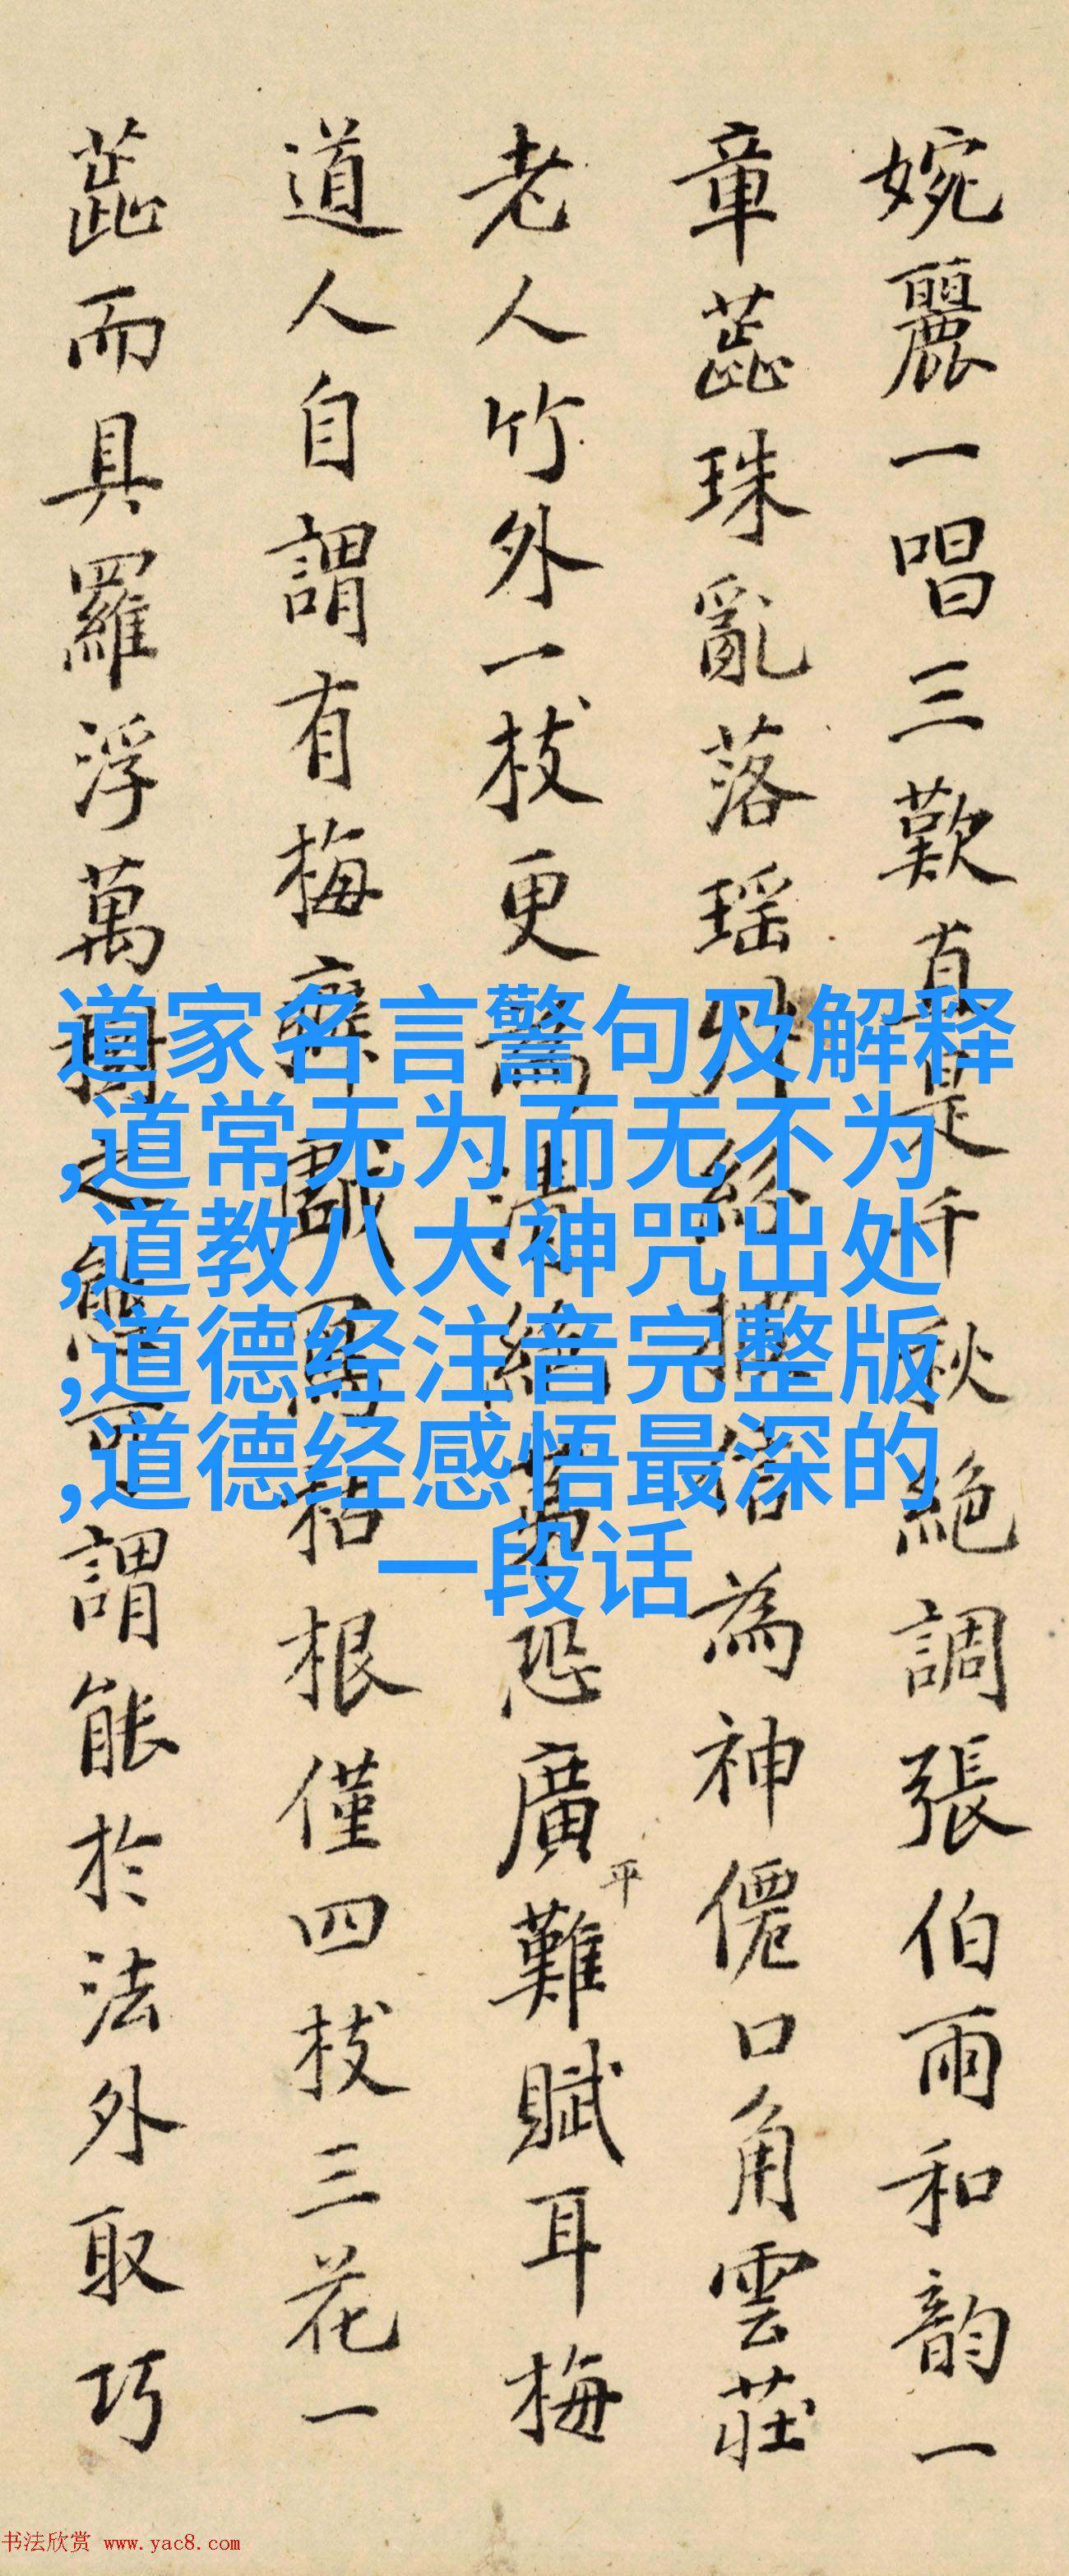 婉麗一唱三歎真是千秋絕調張伯雨和韵一
章蕊珠亂落瑶為神僊口角雲莊
老人竹外一枝更清絕恐廣平難賦耳梅
道人自謂有梅癖戲寫粘根僅四枝三花一
蕊而具羅浮萬之態可謂能於法外取巧
道家名言警句及解释
,道常无为而无不为
,道教八大神咒出处
,道德经注音完整版
,道德经感悟最深的
一段话
书法欣赏 www.yac8.com